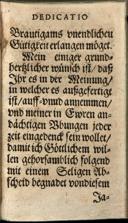 DEDICATIO
Brautigams vnendlichen
Gütigkeit erlangen möget.
Mein einiger grund-
hertzlicher wünsch ist/ daß
Ihr es in der Meinung/
in welcher es außgefertigt
ist/ auff- vnnd annemmen/
vnd meiner in Ewren an-
dächtigen Vbungen jeder-
zeit eingedenck sein wollet/
damit ich Göttlichem wil-
len gehorsamblich folgend
mit einem Seligen Ab-
scheid begnadet von diesem
Ja-